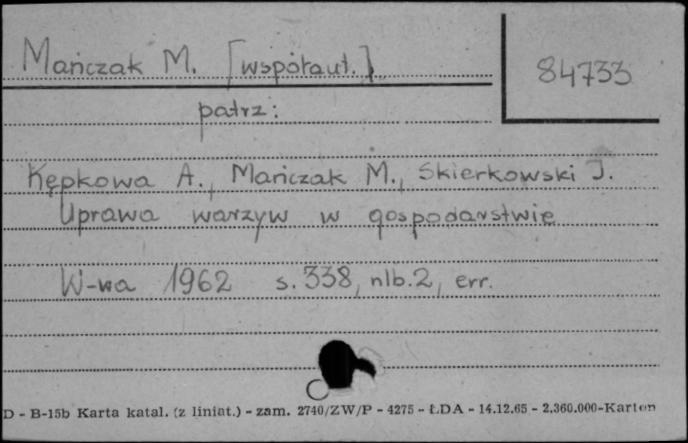 Mańczak M. [współaut.]
84733
patrz:
Kępkowa A., Mańczak M., Skierkowski J.
Uprawa warzyw w gospodarstwie
W-wa 1962 s. 338, nlb. 2, err.
D - B-15b Karta katal. (z liniat.) - zam. 2740/ZW/P - 4275 - ŁDA - 14.12.65 - 2.360.000-Karton